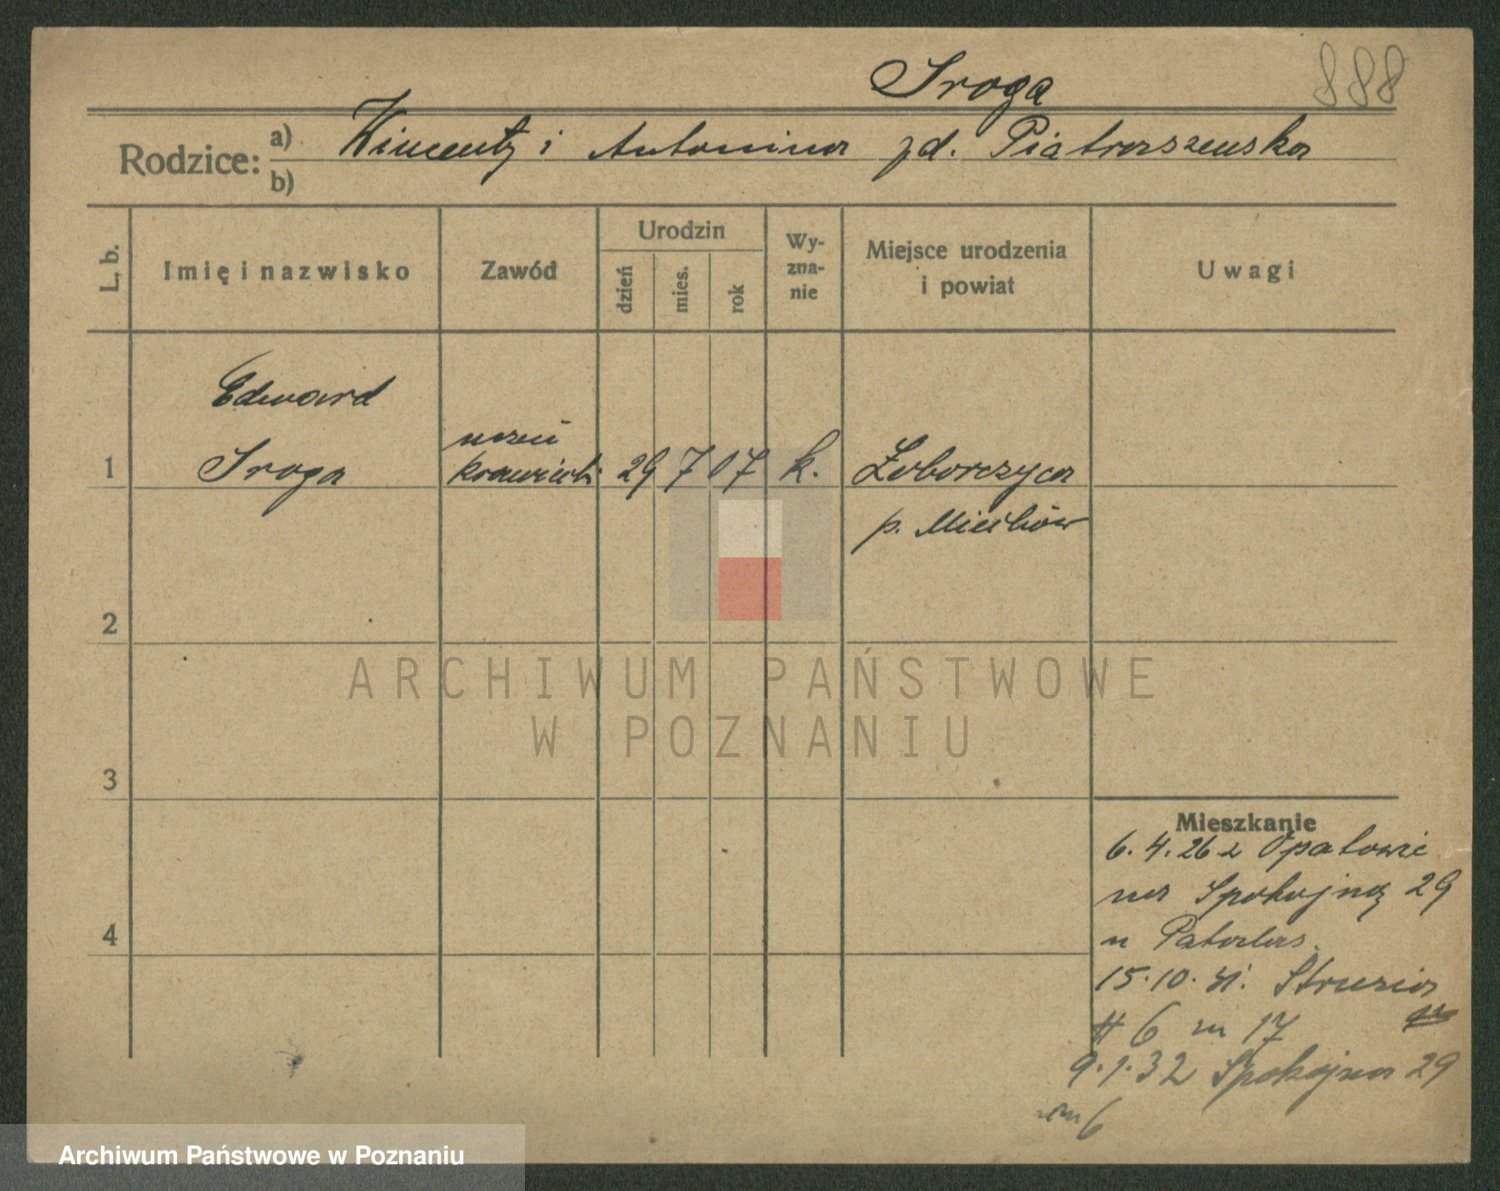 Sroga
888
Rodzice:
a) Wincenty i Antonina zd. Piatraszewska
b)
L. b.
Imię i nazwisko
Zawód
Urodzin
dzień
mies.
rok
Wy-
zna-
nie
Miejsce urodzenia
i powiat
Uwagi
Edward
Sroga
uczeń
krawiecki
1
29 7 07 k.
Zaborczyca
p. Miechów
2
3
4
Mieszkanie
6. 4. 26 z Opatowic
na Spokojną 29
u
15. 10. 31. Strusia
# 6 m 17
9. 1. 32 Spokojna 29
m 6
ARCHIWUM PAŃSTWOWE
W POZNANIU
Archiwum Państwowe w Poznaniu